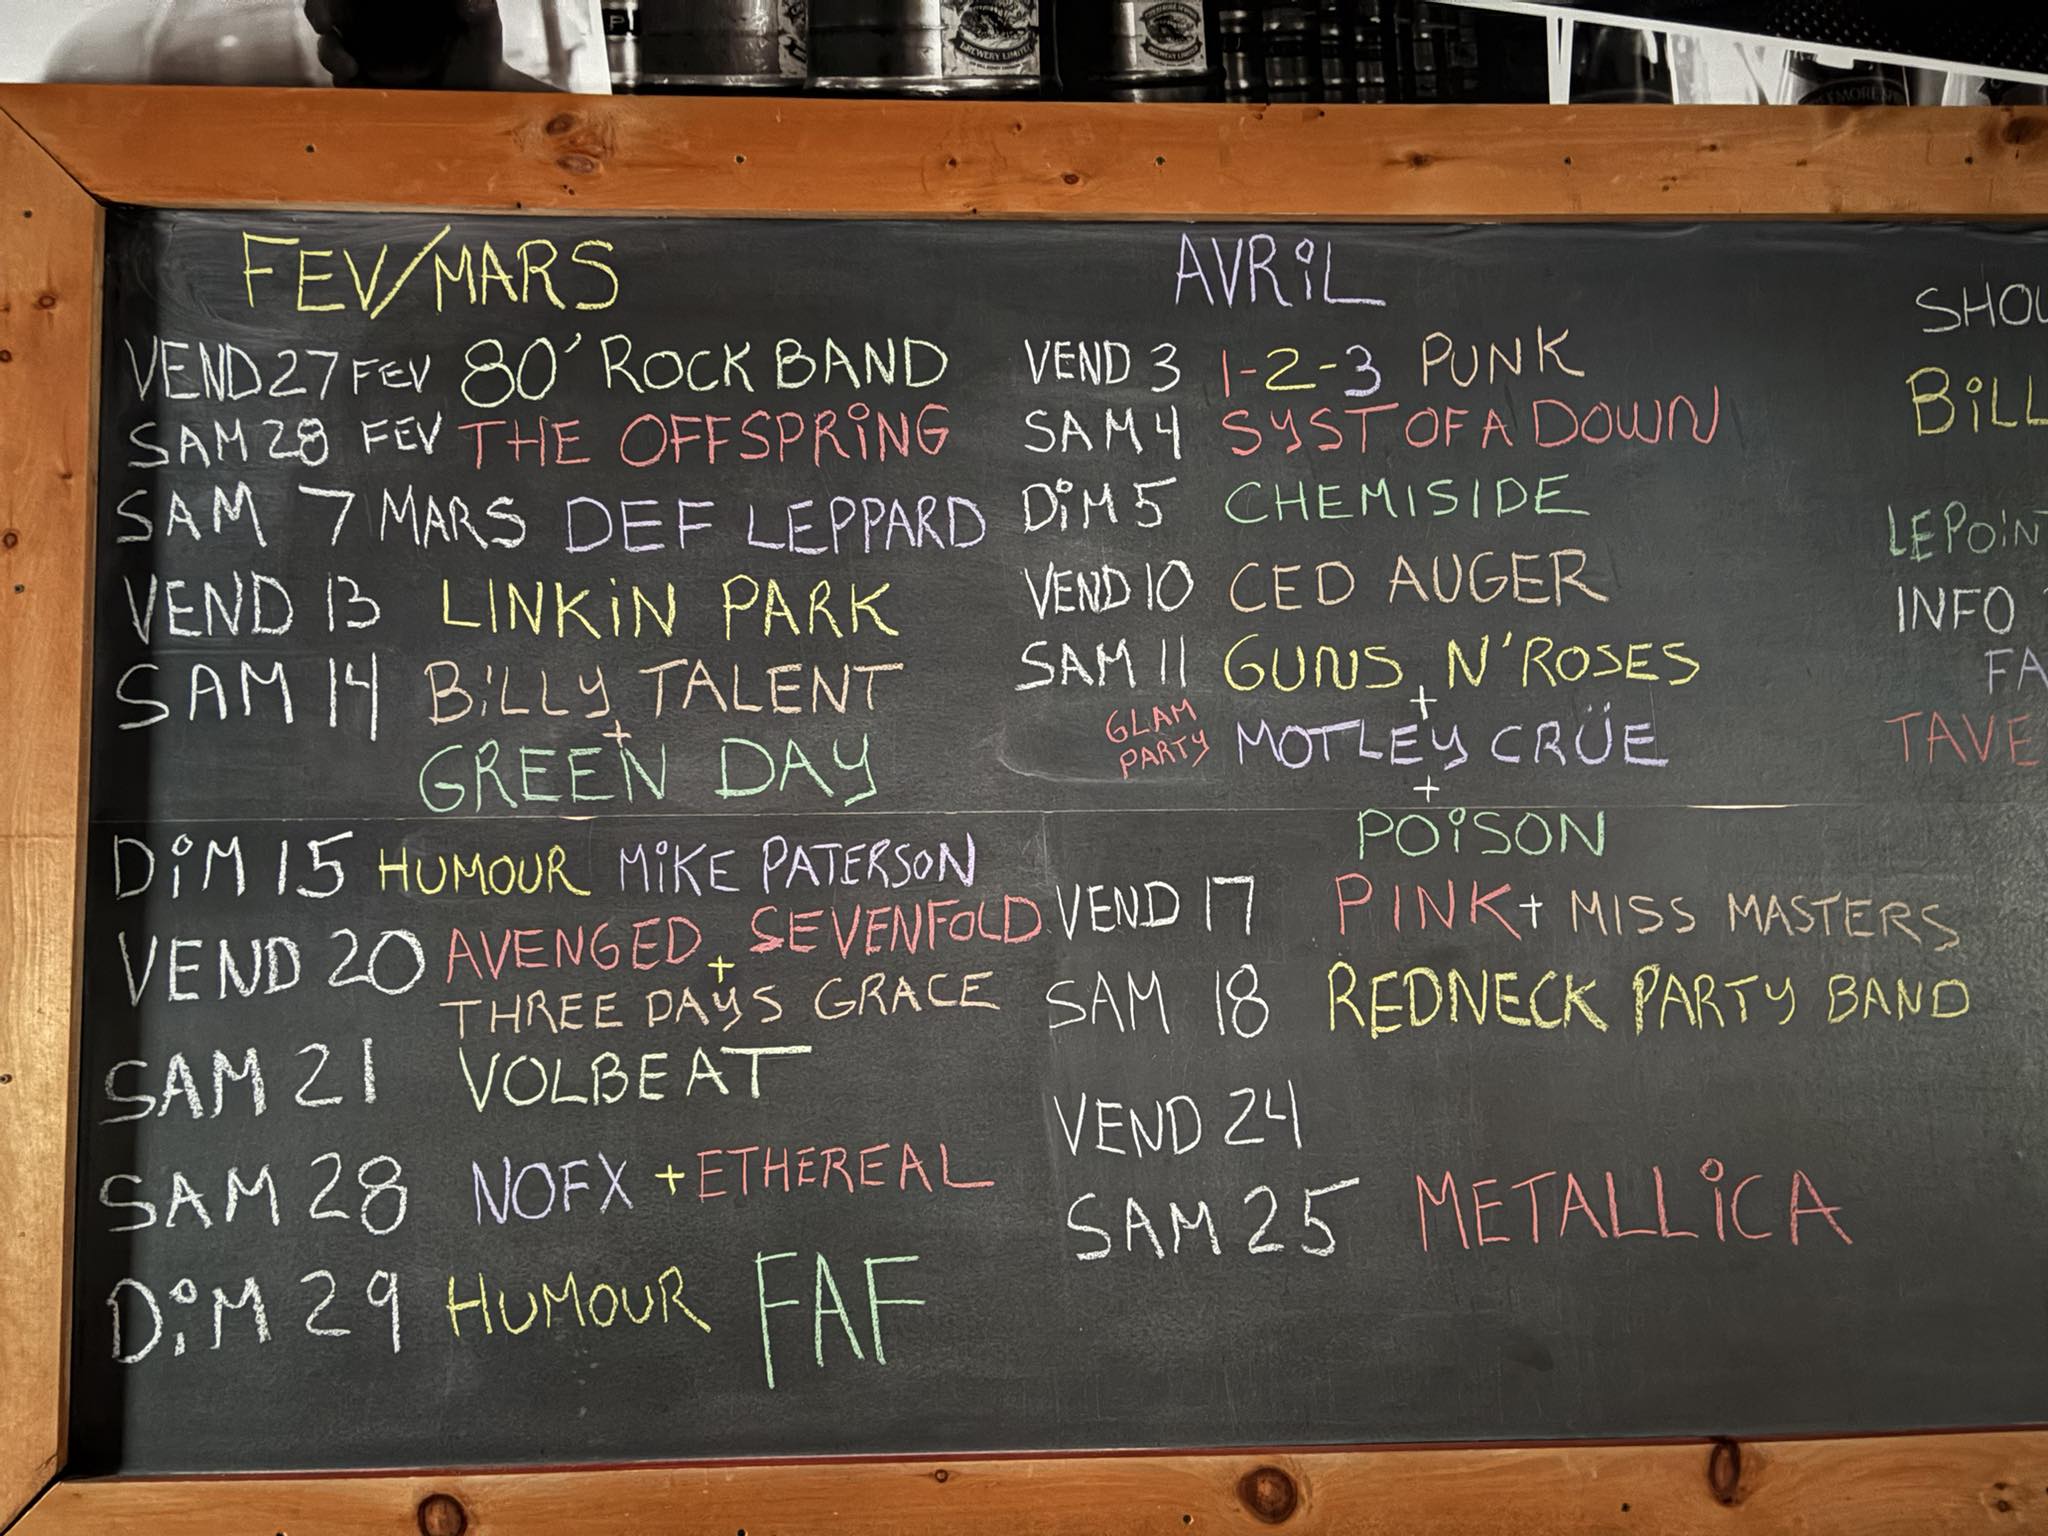 FEV/MARS
VEND 27 FEV 80' ROCK BAND
SAM 28 FEV THE OFFSPRING
SAM 7 MARS DEF LEPPARD
VEND 13 LINKIN PARK
SAM 14 BILLY TALENT
+
GREEN DAY
DIM 15 HUMOUR MIKE PATERSON
VEND 20 AVENGED SEVENFOLD
+
THREE DAYS GRACE
SAM 21 VOLBEAT
SAM 28 NOFX + ETHEREAL
DIM 29 HUMOUR FAF
AVRIL
VEND 3 1-2-3 PUNK
SAM 4 SYST OF A DOWN
DIM 5 CHEMISIDE
VEND 10 CED AUGER
SAM 11 GUNS N'ROSES
+
GLAM PARTY MOTLEY CRÜE
+
POISON
VEND 17 PINK + MISS MASTERS
SAM 18 REDNECK PARTY BAND
VEND 24
SAM 25 METALLICA
SHOW
BILL
LEPOINT
INFO
FA
TAVE
BREWERY LIMITED